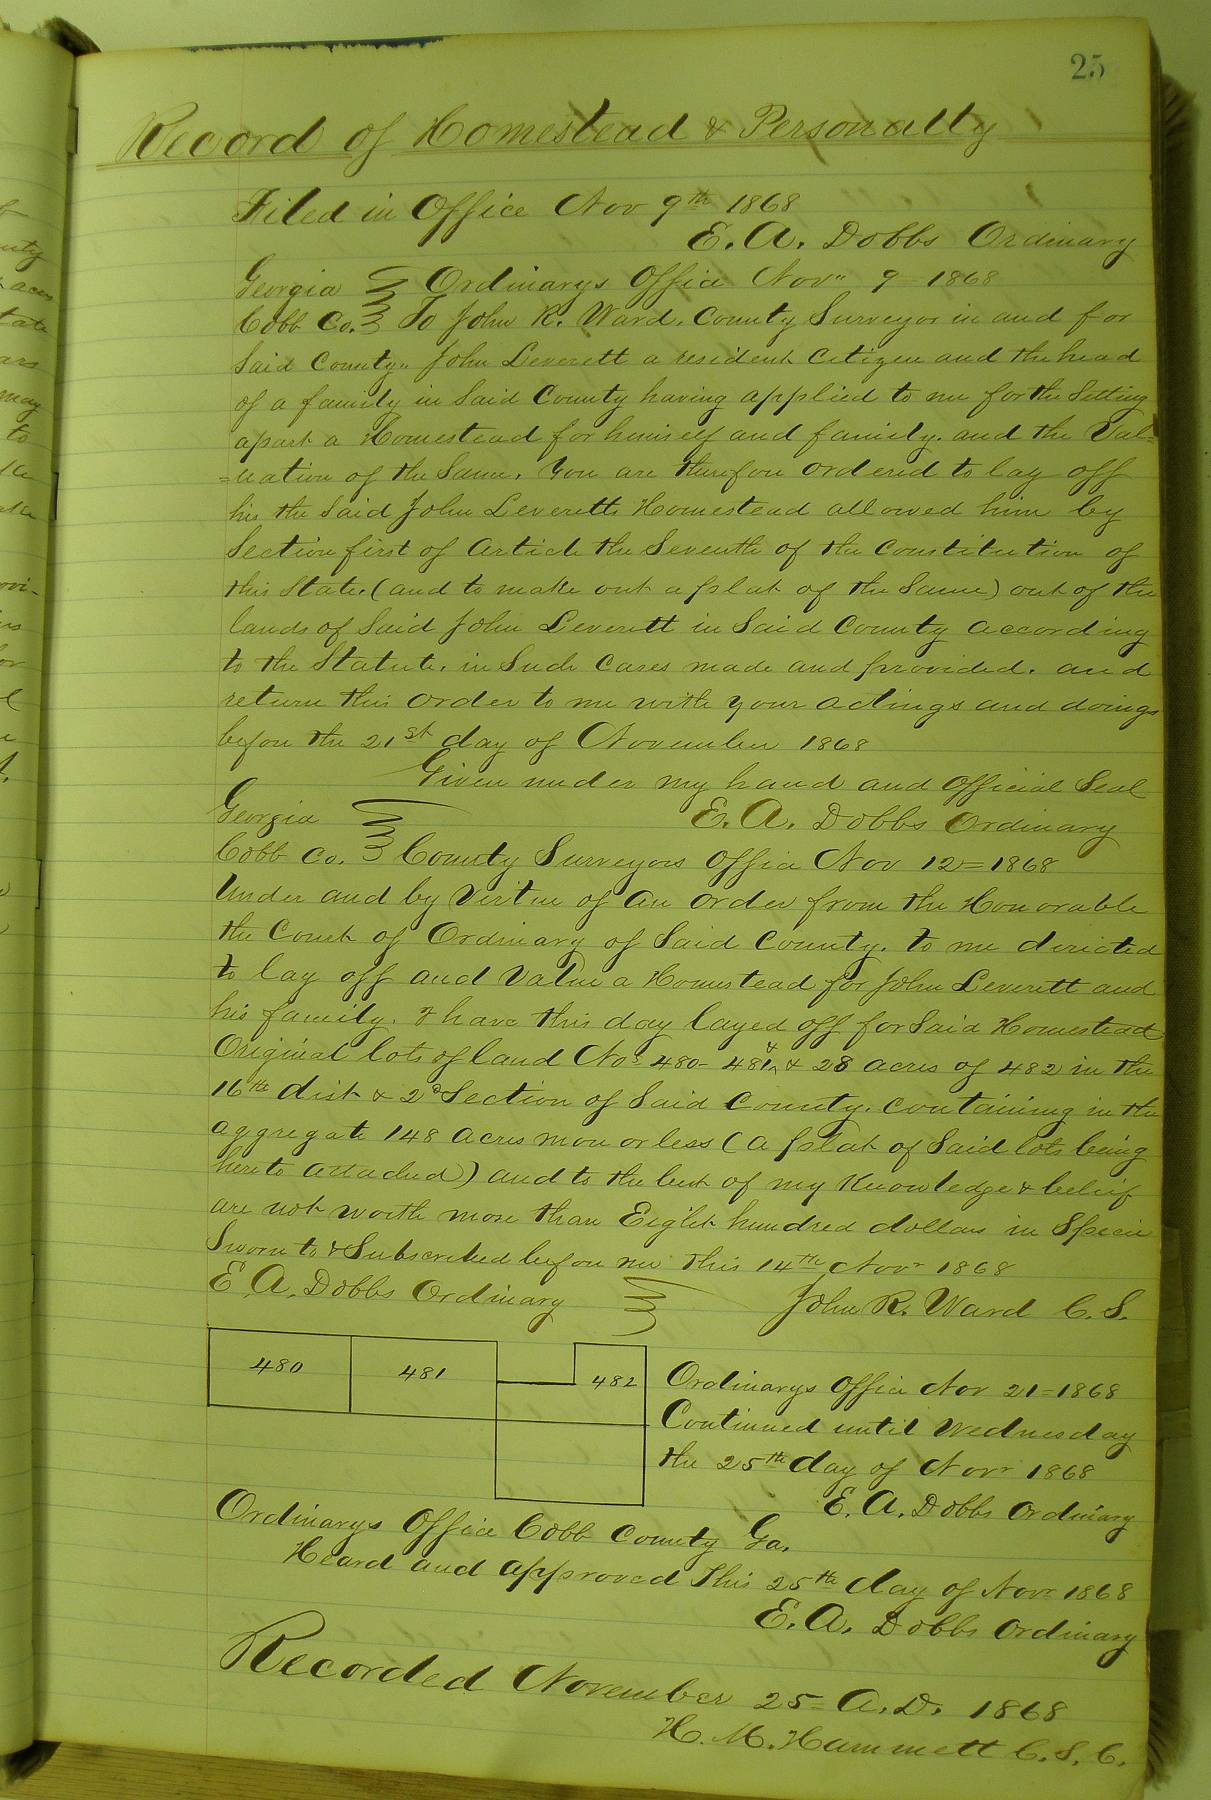 25
Record of Homestead & Personalty
Filed in Office Nov 9th 1868
E. A. Dobbs Ordinary
Georgia } Ordinarys Office Nov" 9 1868
Cobb Co. } To John R. Ward. County Surveyor in and for
Said County. John Leverett a resident Citizen and the head
of a family in Said County having applied to me for the Setting
apart a Homestead for himself and family. and the Val-
=uation of the Same. You are therefore ordered to lay off
his the Said John Leveretts Homestead allowed him by
Section first of Article the Seventh of the Constitution of
this State. (and to make out a plat of the Same) out of the
lands of Said John Leverett in Said County according
to the Statute. in Such Cases made and provided. and
return this order to me with your actings and doings
before the 21st day of November 1868
Given under my hand and Official Seal
Georgia } E. A. Dobbs Ordinary
Cobb Co. } County Surveyors Office Nov 12=1868
Under and by Virtue of An order from the Honorable
the Court of Ordinary of Said County. to me directed
to lay off and Value a Homestead for John Leverett and
his family. I have this day layed off for Said Homestead
Original lots of land Nos 480- 481, & 28 acres of 482 in the
16th dist & 2d Section of Said County. Containing in the
aggregate 148 Acres more or less (a plat of Said lots being
hereto attached) and to the best of my Knowledge & belief
are not worth more than Eight hundred dollars in Specie
Sworn to & Subscribed before me this 14th Novr 1868
E A. Dobbs Ordinary } John R. Ward C. S.
480 481 482
Ordinarys Office Nov 21=1868
Continued until Wednesday
the 25th day of Novr 1868
E. A. Dobbs Ordinary
Ordinarys Office Cobb County Ga.
Heard and approved This 25th day of Novr 1868
E. A. Dobbs Ordinary
Recorded November 25= A. D. 1868
H. M. Hammett C. S. C.